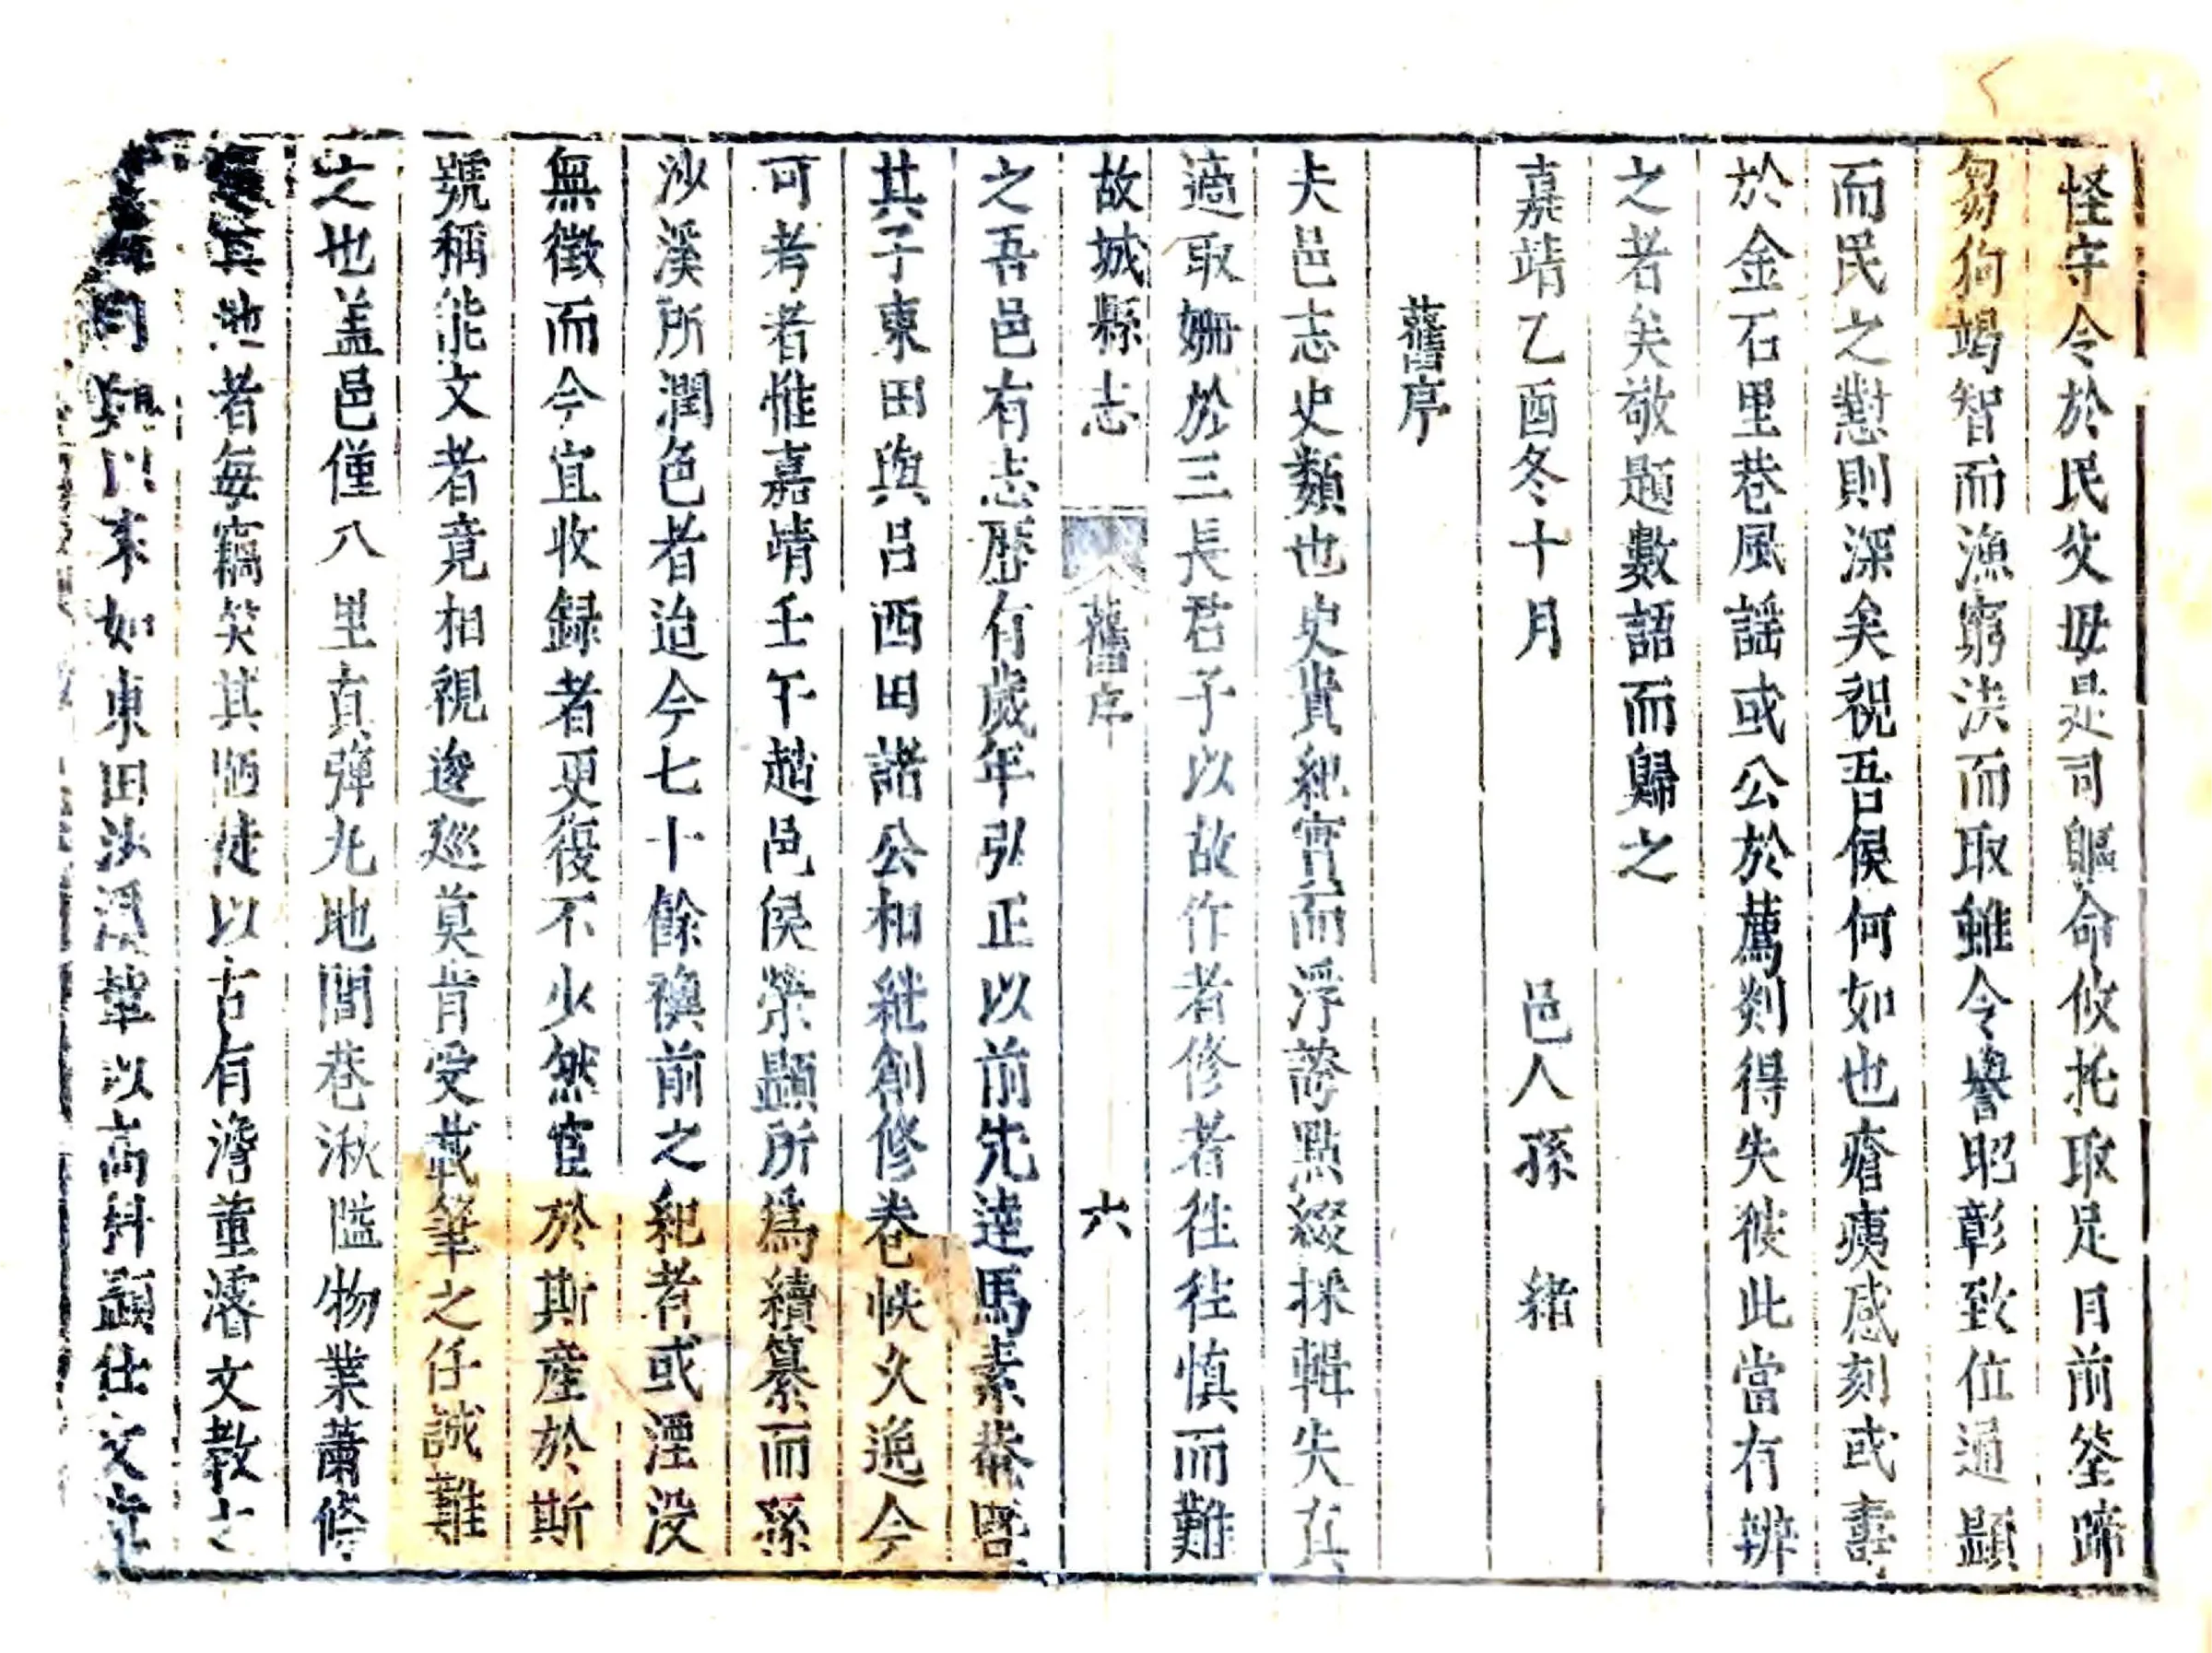 怪守令於民父母是司軀命攸托取足目前筌蹄
芻狗竭智而漁窮決而取雖令譽昭彰致位通顯
而民之懟則深矣視吾侯何如也瘡痍感刻或壽
於金石里巷風謡或公於薦剡得失彼此當有辨
之者矣敬題數語而歸之
嘉靖乙酉冬十月 邑人孫 緒
舊序
夫邑志史類也史貴紀實而浮誇點綴採輯失真
適取姍於三長君子以故作者修者徃徃慎而難
故城縣志 舊序 六
之吾邑有志歷有歲年弘正以前先達馬素菴暨
其子東田與呂西田諸公相繼創修卷帙久逸今
可考者惟嘉靖壬午趙邑侯榮顯所為續纂而孫
沙溪所潤色者迨今七十餘禩前之紀者或湮没
無徵而今宜收録者更復不少然宦於斯產於斯
號稱能文者竟相視逡巡莫肯受載筆之任誠難
之也盖邑僅八里真彈丸地閭巷湫隘物業蕭條
其池者每竊笑其陋徒以古有澹董濬文教之
以來如東田沙溪輩以高科顯仕文章